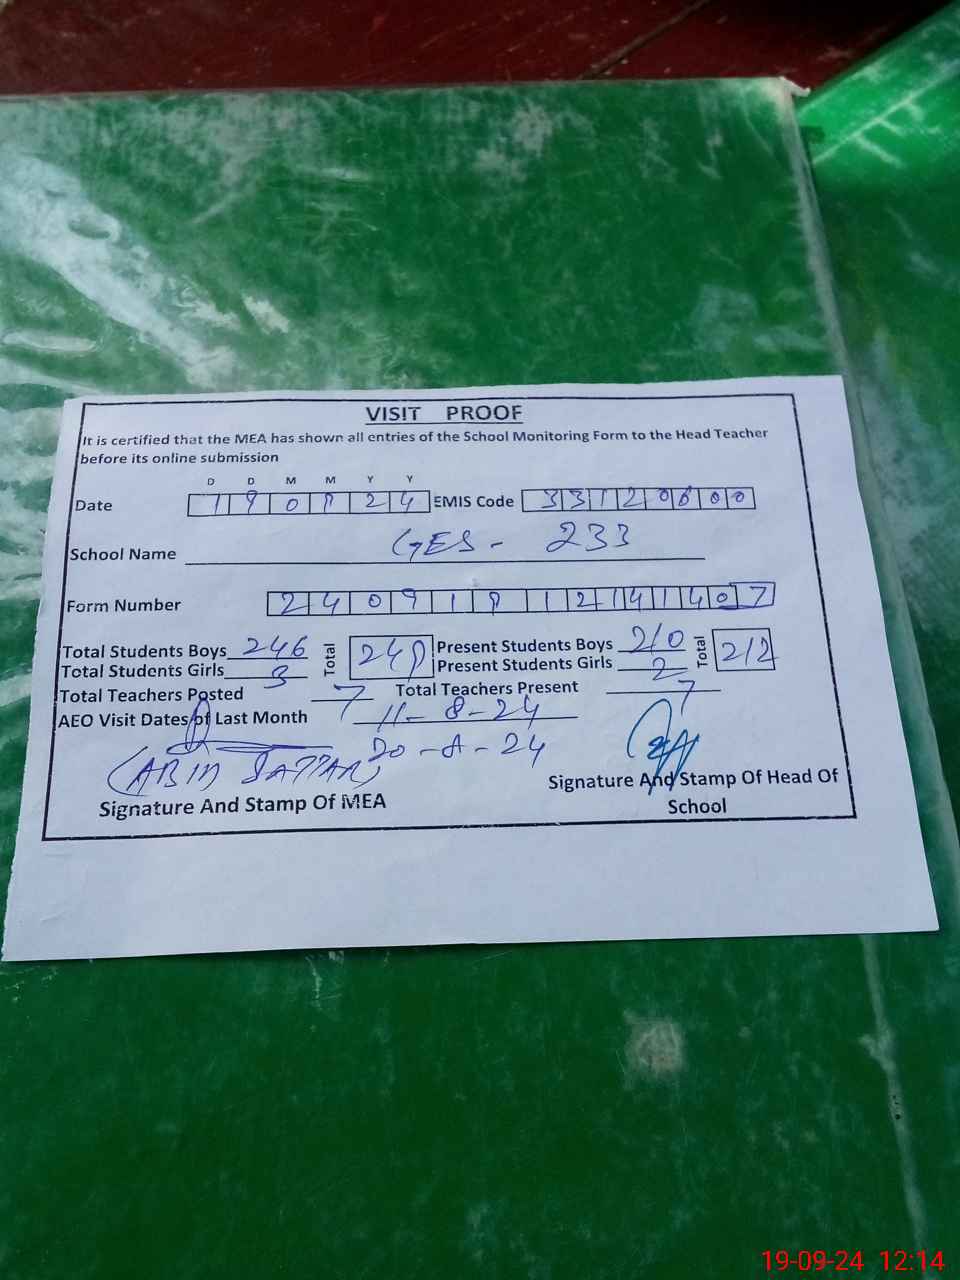 VISIT PROOF
It is certified that the MEA has shown all entries of the School Monitoring Form to the Head Teacher
before its online submission
D D M M Y Y
Date 190924 EMIS Code 33120600
School Name GES - 233
Form Number
Total Students Boys 246 Total Present Students Boys 210 Total 212
Total Students Girls 3 Present Students Girls 2
Total Teachers Posted 7 Total Teachers Present 7
AEO Visit Dates of Last Month 11-8-24
24
Signature And Stamp Of MEA
Signature And Stamp Of Head Of
School
19-09-24 12:14